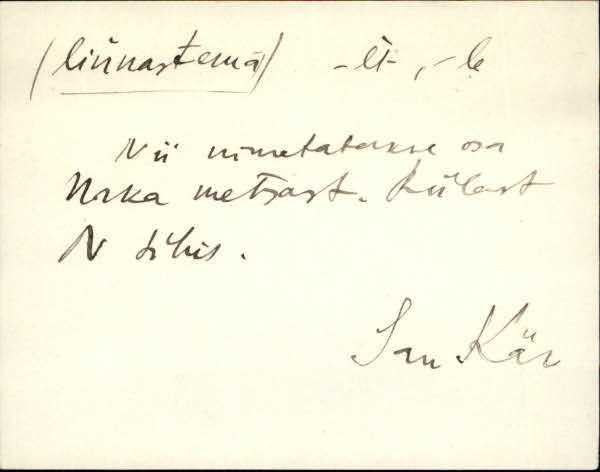 (liünastemä) -lt, -le
Nii nimetatakse osa
Uska metsast. Külast
N sihis.
San Kär